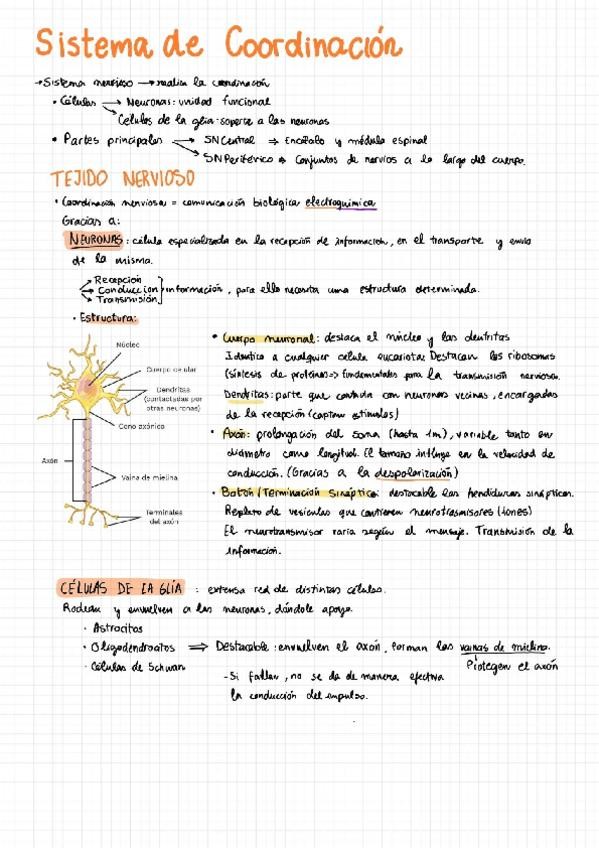 Sistema de Coordinación
→Sistema nervioso → realiza la coordinación
• Células → Neuronas: unidad funcional
→ Células de la glía: soporte a las neuronas
• Partes principales → SNCentral ⇒ Encéfalo y médula espinal
→ SNPeriférico ⇒ Conjuntos de nervios a lo largo del cuerpo.
TEJIDO NERVIOSO
• Coordinación nerviosa = comunicación biológica electroquímica
Gracias a:
NEURONAS: célula especializada en la recepción de información, en el transporte y envio
de la misma.
→ Recepción
→ Conducción } información, para ello necesita una estructura determinada.
→ Transmisión
• Estructura:
Núcleo
Cuerpo celular
Dendritas
(contactadas por
otras neuronas)
Cono axónico
Axón
Vaina de mielina
Terminales
del axón
• Cuerpo neuronal: destaca el núcleo y las dentritas
Idéntico a cualquier célula eucariota. Destacan los ribosomas
(síntesis de proteínas => fundamentales para la transmisión nerviosa.
Dendritas: parte que contacta con neuronas vecinas, encargadas
de la recepción (captan estímulos)
• Axón: prolongación del soma (hasta 1m), variable tanto en
diámetro como longitud. El tamaño influye en la velocidad de
conducción. (Gracias a la despolarización)
• Botón/Terminación sináptica: destacable las hendiduras sinápticas.
Repleto de vesículas que contienen neurotrasmisores (iones)
El neurotransmisor varía según el mensaje. Transmisión de la
información.
CÉLULAS DE LA GLÍA : extensa red de distintas células.
Rodean y envuelven a las neuronas, dándole apoyo.
• Astrocitos
• Oligodendroatos ⇒ Destacable: envuelven el axón, forman las vainas de mielina.
• Células de Schwan
Protegen el axón
- Si fallan, no se da de manera efectiva
la conducción del impulso.